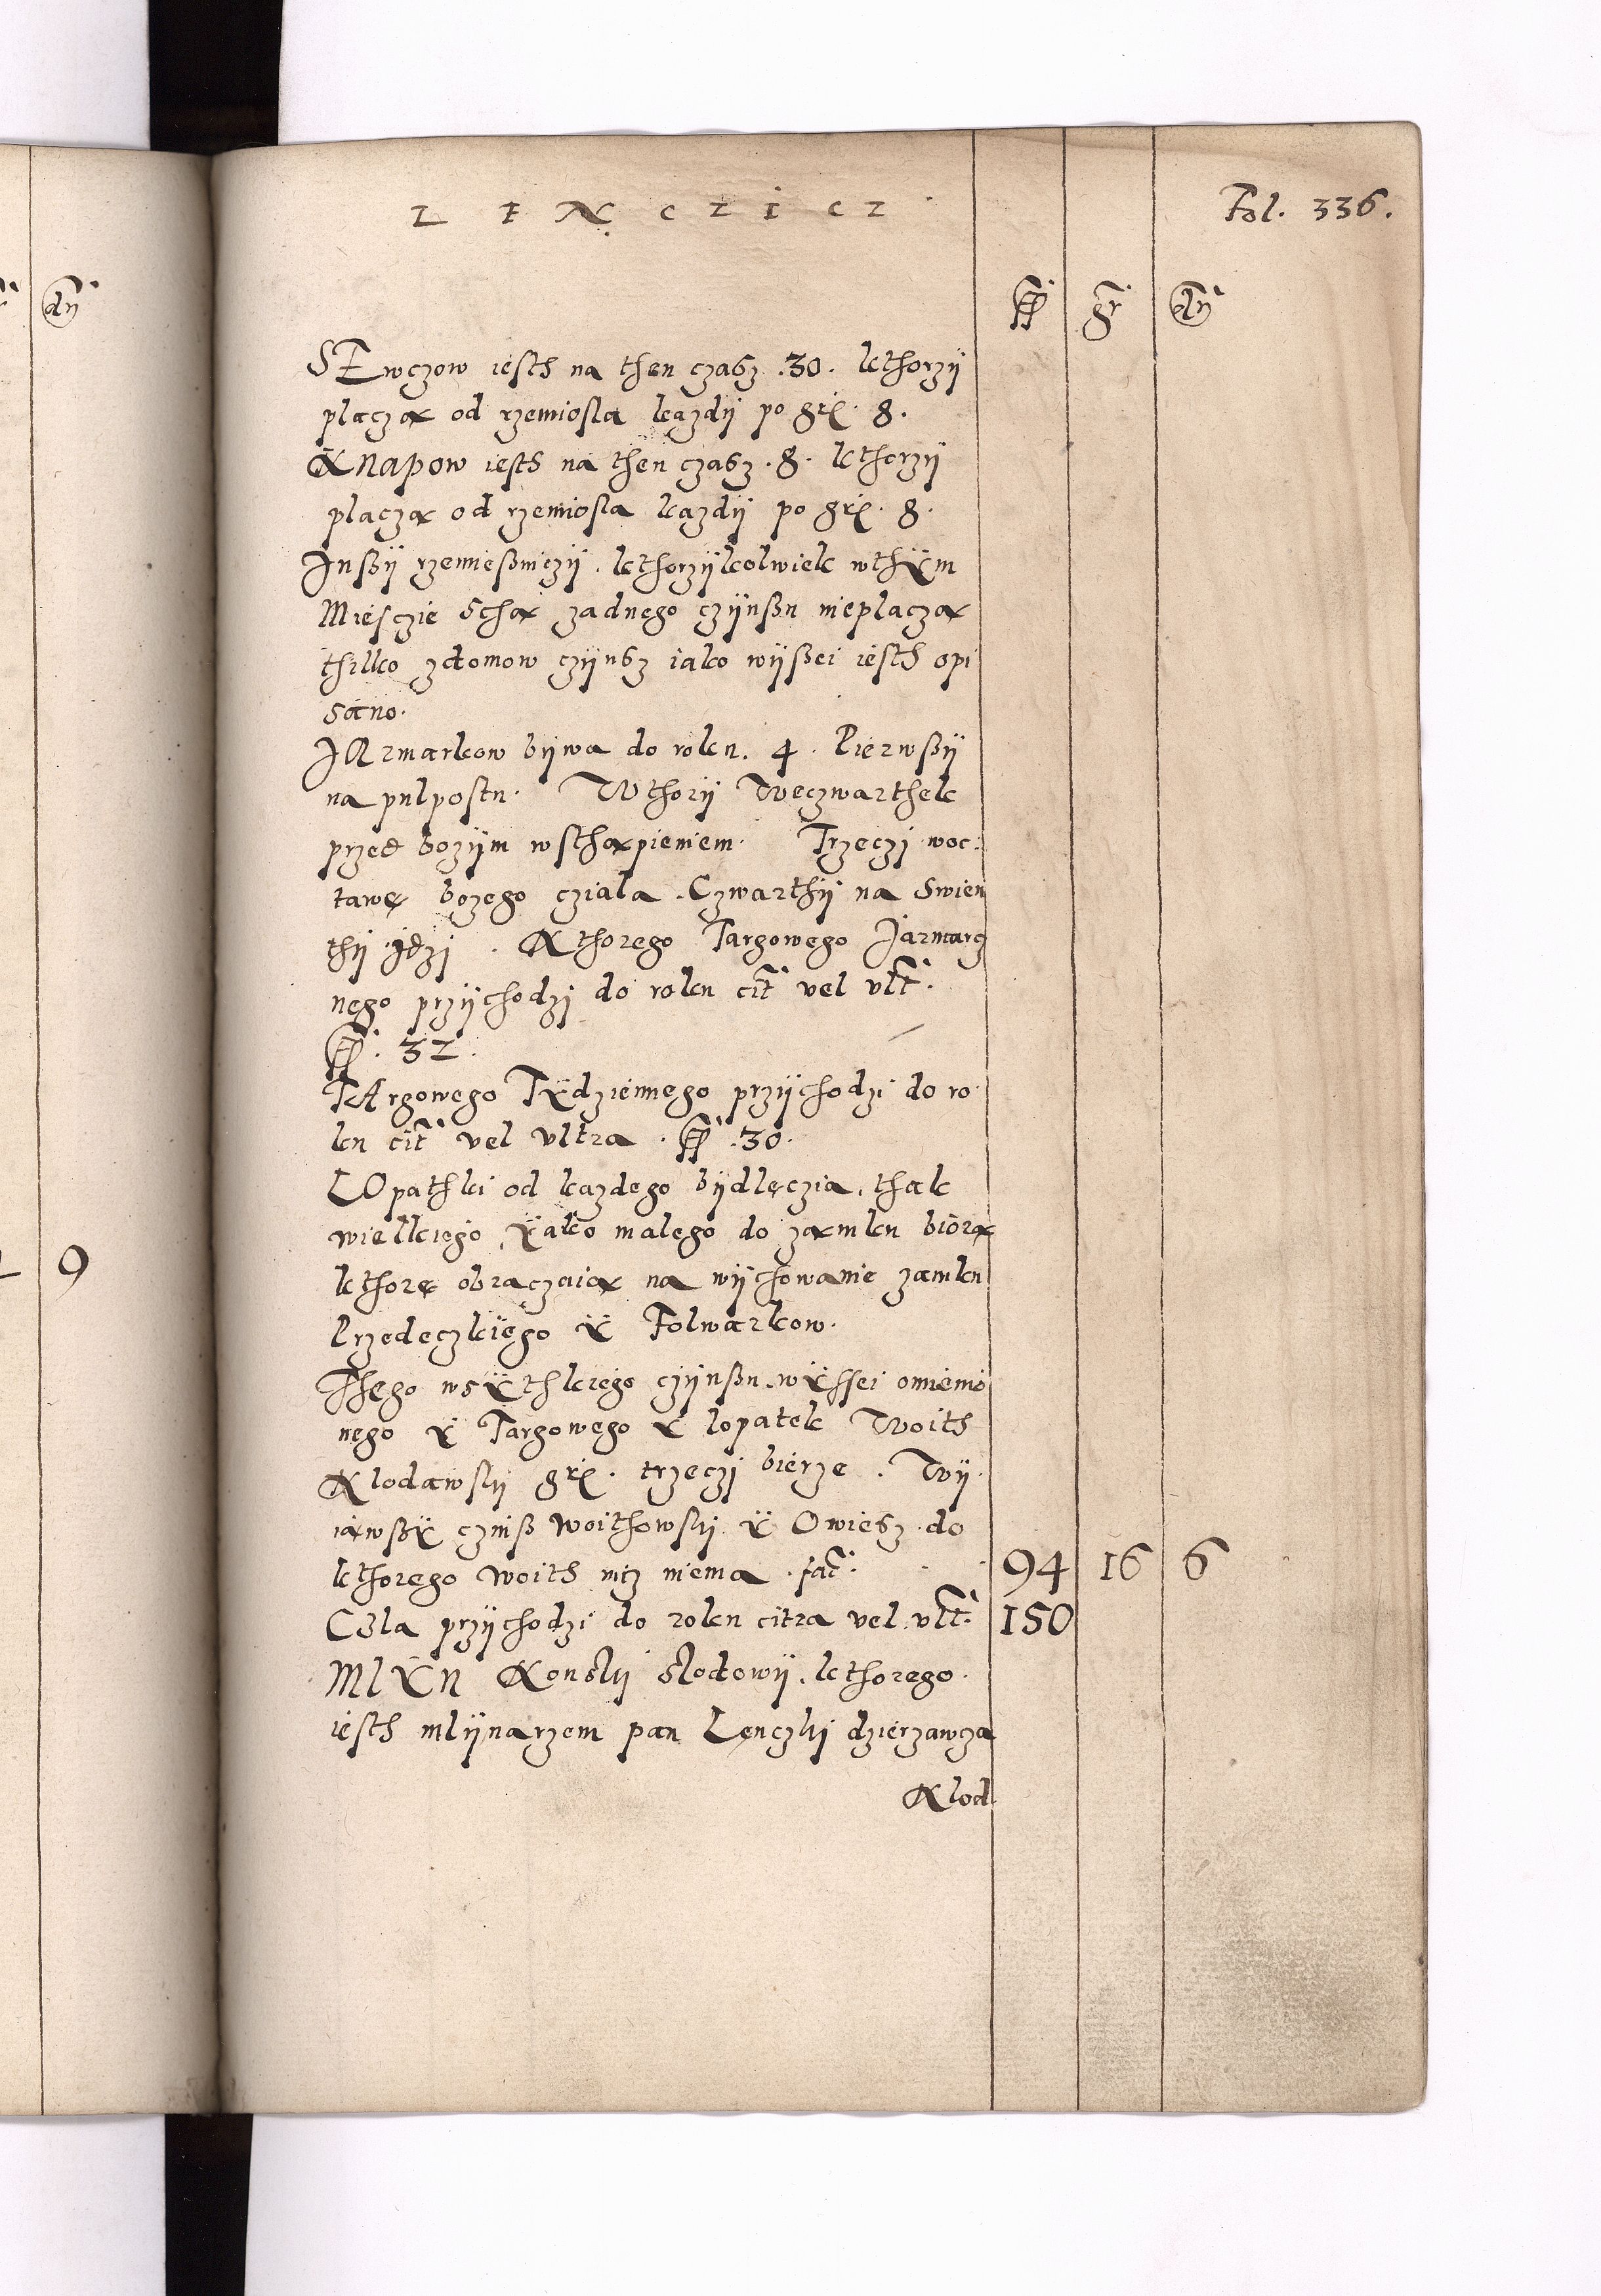 LENCZICZ
Fol. 336.
fl gr dn
SEwczow iesth na then czasz .30. kthorzÿ
placzą od rzemiosla kazdÿ po grš. 8.
Knapow iesth na then czasz .8. kthorzÿ
placzą od rzemiosla kazdÿ po grš. 8.
Inßÿ rzemießniczÿ. kthorzÿkolwiek wthÿm
Miesczie sthą zadnego czÿnßu nieplaczą
thilko zdomow czÿnsz iako wÿßei iesth opi
sano.
JArmarkow bÿwa do roku. 4. Pierwßÿ
na pulpostu. Wthorÿ Weczwarthek
przed bozÿm wsthąpieniem. Trzeczj woc:
tawę bozego cziala. Czwarthÿ na Swien
thÿ jdzj. Kthorego Targowego Jarmarg
nego przÿchodzj do roku cit vel vlt.
fl. 32.
TArgowego Tÿdziennego przÿchodzi do ro
ku cit vel vltra. fl .30.
LOpathki od kazdego bÿdlęczia. thak
wielkiego ÿako malego do zamku biorą
kthorę obraczaią na wÿchowanie zamku
Przedeczkiego ÿ Folwarkow.
Thego wsÿthkiego czÿnßu wÿssei omienio
nego ÿ Targowego ÿ lopatek Woith
Klodawskÿ grš. trzeczj bierze. Wÿ
iąwßÿ czinß woithowskÿ ÿ Owiesz do
kthorego woith nicz niema. fac. 94 16 6
Czla przÿchodzi do roku citra vel vlt. 150
MlÿN Konskÿ slodowÿ. kthorego
iesth mlÿnarzem pan Lenczki dzierzawcza
Klod
9
dn